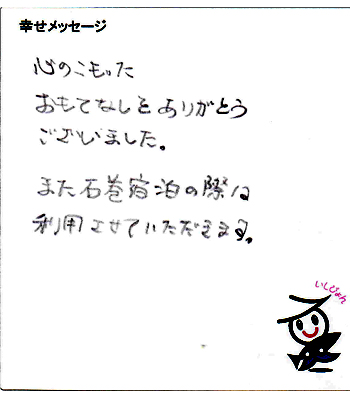 幸せメッセージ
心のこもった
おもてなしをありがとう
ございました。
また石巻宿泊の際は
利用させていただきます。
いしぴょん